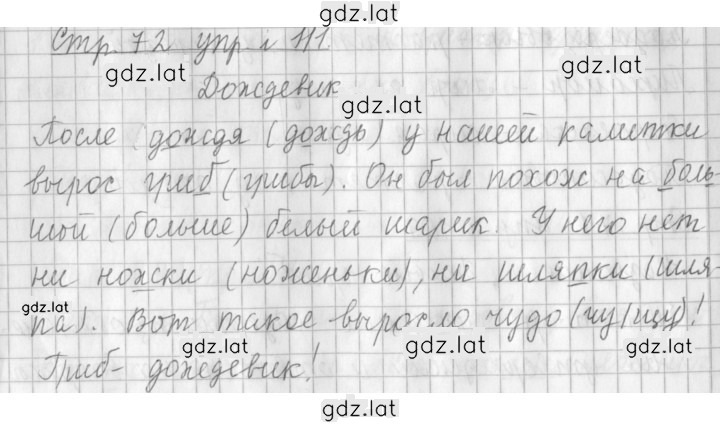 gdz.lat
Стр. 72 упр. 111.
gdz.lat
gdz.lat
Дождевик
gdz.lat
После дождя (дождь) у нашей калитки
вырос гриб (грибы). Он был похож на боль-
шой (больше) белый шарик. У него нет
ни ножки (ноженьки), ни шляпки (шля-
gdz.lat
па). Вот такое выросло чудо (чу/щу)!
gdz.lat
gdz.lat
gdz.lat
Гриб- дождевик!
gdz.lat